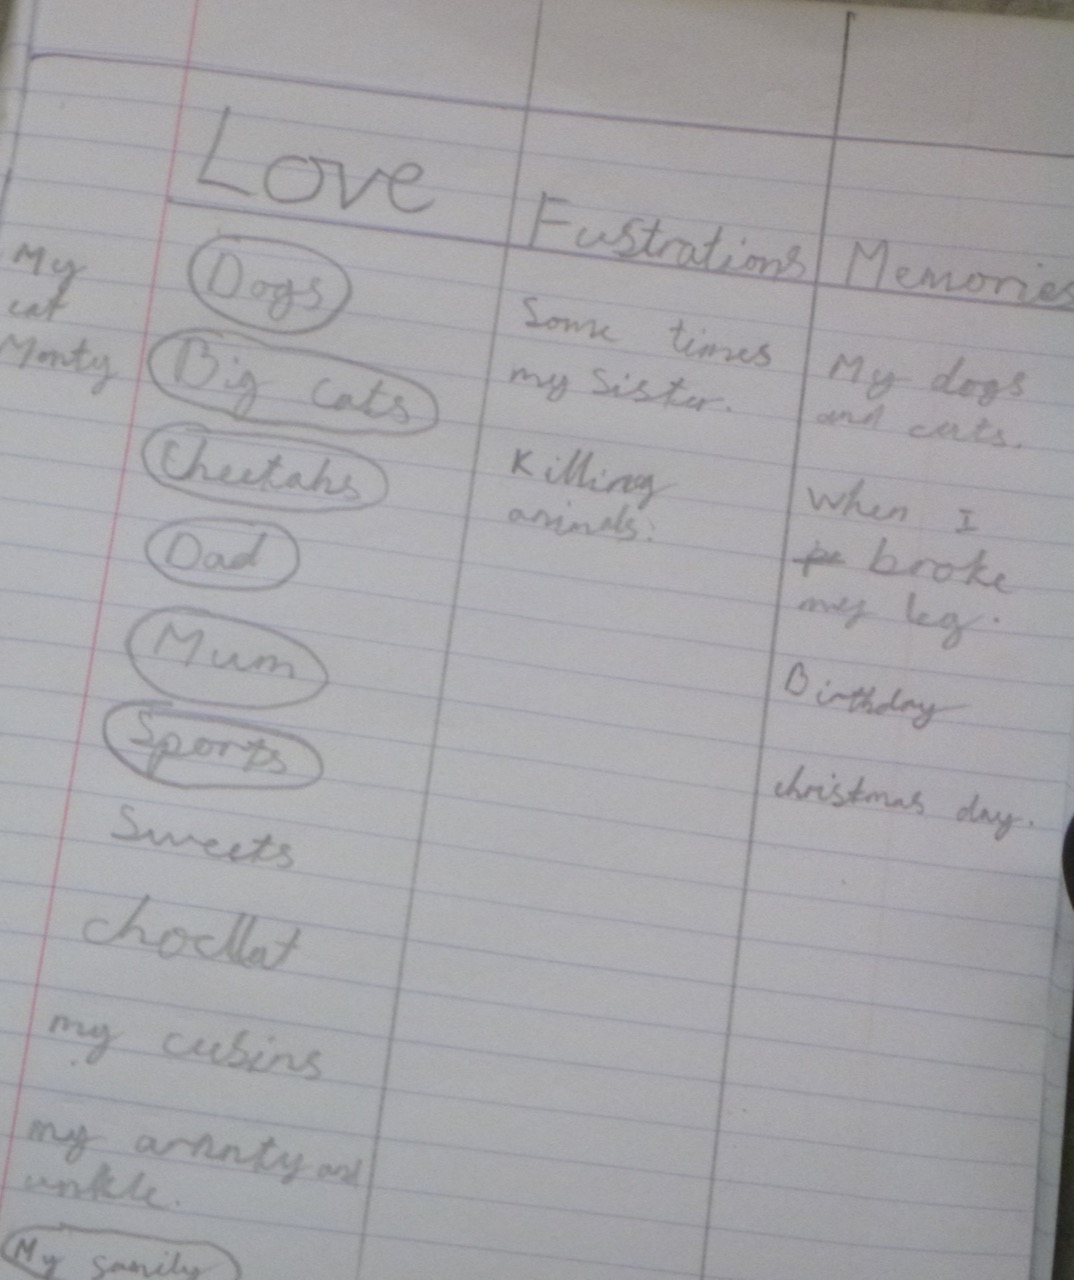 Love
Fustrations
Memories
My
cat
Monty
Dogs
Big cats
Cheetahs
Dad
Mum
Sports
Sweets
chocllat
my cubins
my arnnty and
unkle.
My family
Some times
my Sister.
Killing
animals.
My dogs
and cats.
When I
broke
my leg.
Birthday
christmas day.